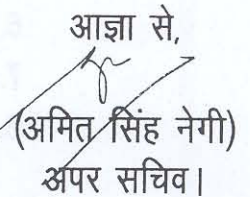 आज्ञा से,
(अमित सिंह नेगी)
अपर सचिव।